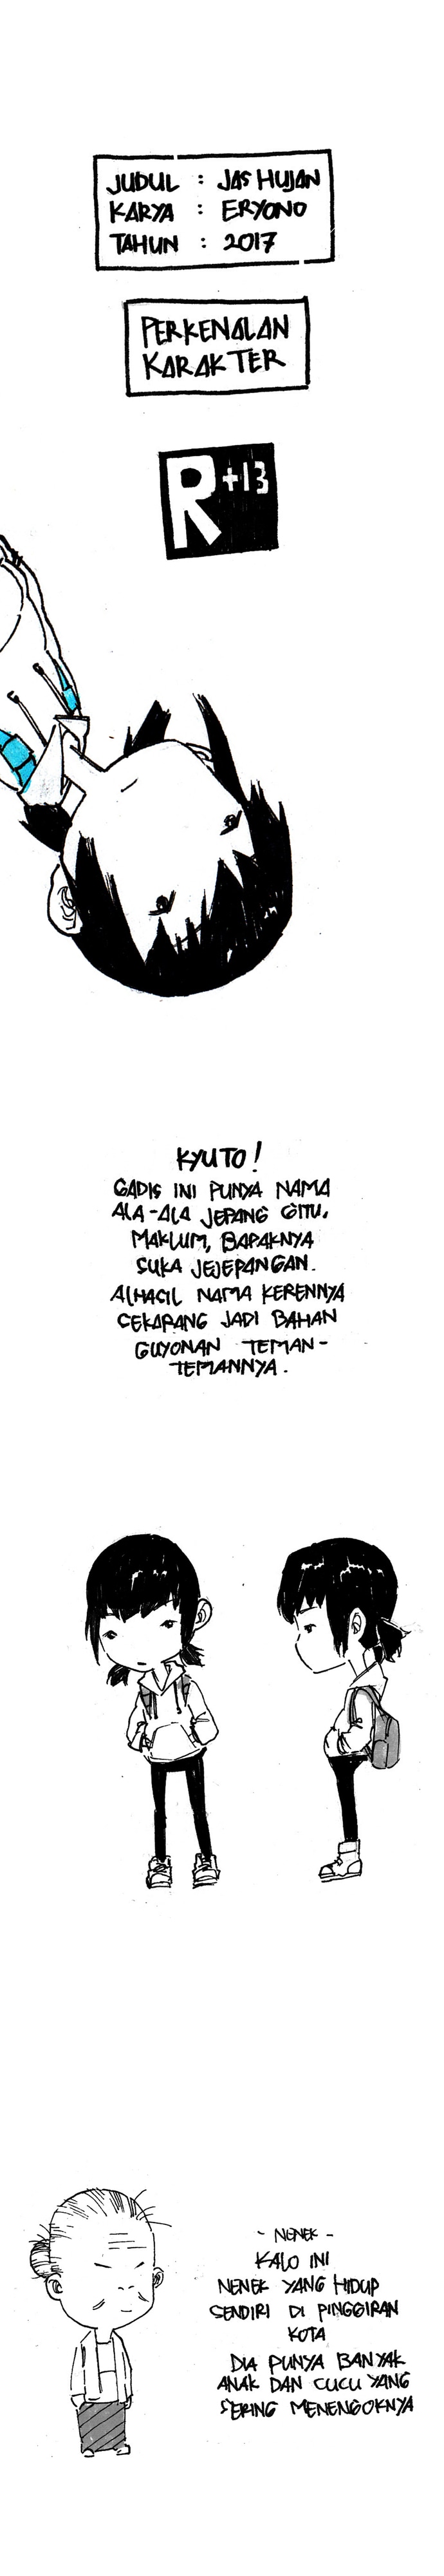 JUDUL : JAS HUJAN
KARYA : ERYONO
TAHUN : 2017
PERKENALAN
KARAKTER
R+13
KYUTO!
GADIS INI PUNYA NAMA
ALA-ALA JEPANG GITU.
MAKLUM, BAPAKNYA
SUKA JEJEPANGAN.
ALHASIL NAMA KERENNYA
SEKARANG JADI BAHAN
GUYONAN TEMAN-
TEMANNYA.
- NENEK -
KALO INI
NENEK YANG HIDUP
SENDIRI DI PINGGIRAN
KOTA
DIA PUNYA BANYAK
ANAK DAN CUCU YANG
SERING MENENGOKNYA